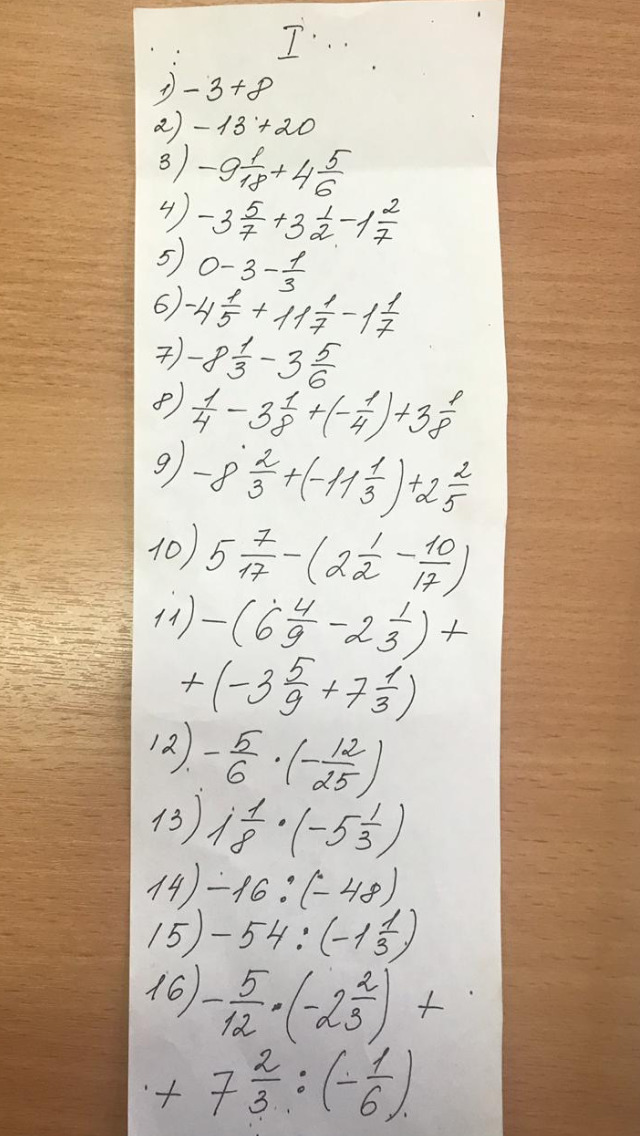 I
1) -3+8
2) -13+20
3) -9 1/18 + 4 5/6
4) -3 5/7 + 3 1/2 - 1 2/7
5) 0-3-1/3
6) -4 1/5 + 11 1/7 - 1 1/7
7) -8 1/3 - 3 5/6
8) 1/4 - 3 1/8 + (-1/4) + 3 1/8
9) -8 2/3 + (-11 1/3) + 2 2/5
10) 5 7/17 - (2 1/2 - 10/17)
11) -(6 4/9 - 2 1/3) +
+ (-3 5/9 + 7 1/3)
12) -5/6 · (-12/25)
13) 1 1/8 · (-5 1/3)
14) -16 : (-48)
15) -54 : (-1 1/3)
16) -5/12 · (-2 2/3) +
+ 7 2/3 : (-1/6)